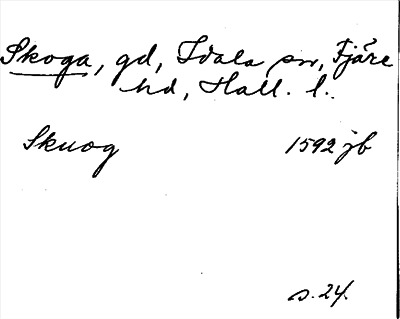 Skoga, gd, Idala sn, Fjäre
hd, Hall. l.
Skuog 1592 jb
s. 24.